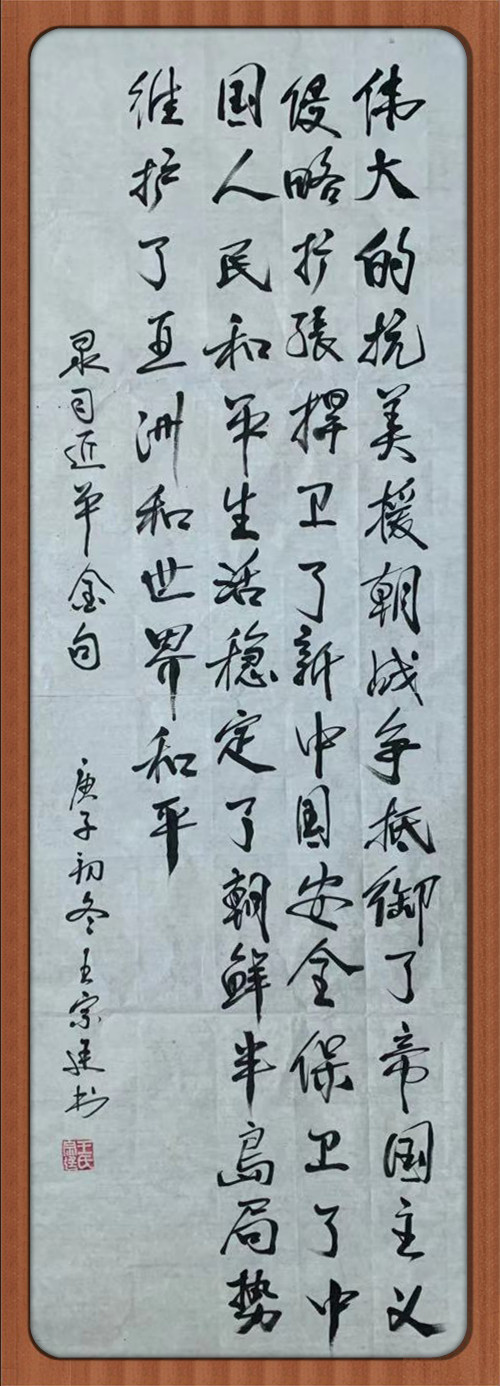 伟大的抗美援朝战争抵御了帝国主义
侵略扩张捍卫了新中国安全保卫了中
国人民和平生活稳定了朝鲜半岛局势
维护了亚洲和世界和平
录习近平金句
庚子初冬王宗廷书